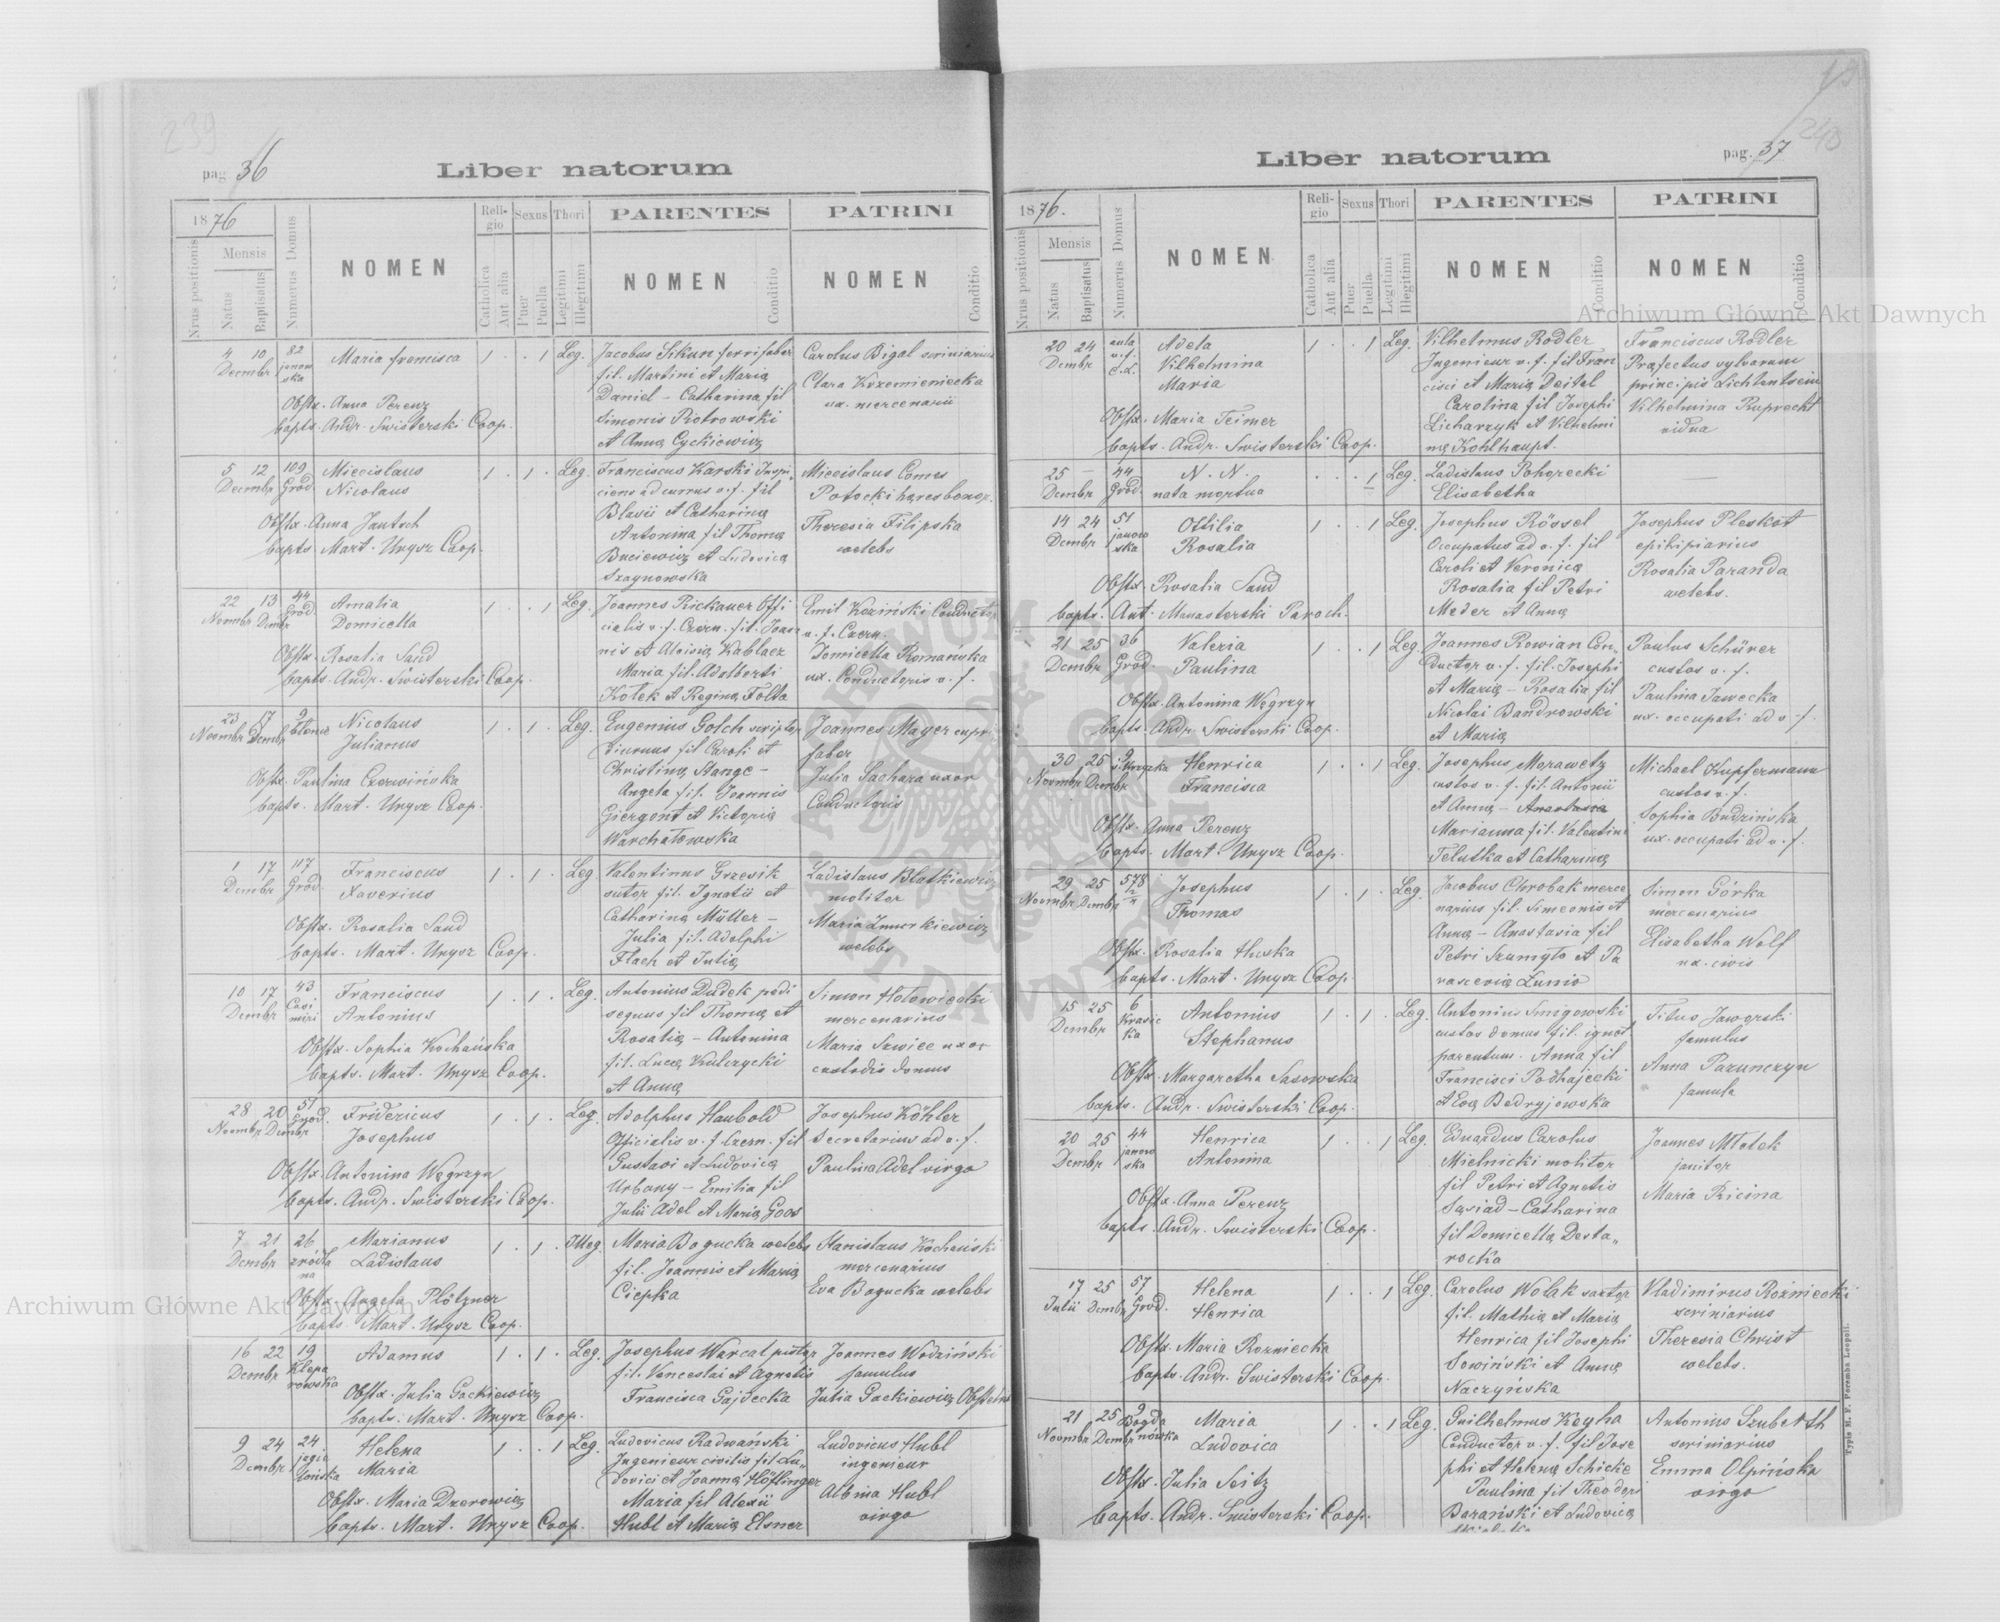 239
pag. 36
Liber natorum
1876
Nrus positionis
Mensis
Natus
Baptisatus
Numerus Domus
NOMEN
Religio
Catholica
Aut alia
Sexus
Puer
Puella
Thori
Legitimi
Illegitimi
PARENTES
NOMEN
Conditio
PATRINI
NOMEN
Conditio
4 10 Decmbr 82 janowska
Maria francisca
1 . . 1 Leg.
Jacobus Sikun ferri faber
fil. Martini et Maria
Daniel – Catharina fil
Simonis Piotrowski
et Anna Cyckiewicz
Carolus Bigal scriniarius
Clara Krzemieniecka
ux. mercenarii
Obstx. Anna Perenz
bapts. Andr. Swisterski Coop.
5 12 Decmbr 109 Grod.
Miecislaus
Nicolaus
1 . 1 . Leg.
Franciscus Karski Inspi
ciens ad currus v. f. fil
Blasii et Catharina
Antonina fil Thoma
Buciewicz et Ludovica
Szaynowska
Miecislaus Comes
Potocki haeres bonor.
Theresia Filipska
coelebs
Obstx. Anna Jantsch
bapts. Mart. Unysz Coop.
22 Novmbr 13 Dcmbr 44 Grod.
Amalia
Domicella
1 . . 1 Leg.
Joannes Rickauer Offi
cialis v. f. Czern. fil. Joan
nis et Aloisia Kablacz
Maria fil. Adalberti
Kotek et Regina Folta
Emil Koziński Conductor
v. f. Czern.
Domicella Romańska
ux. Conductoris v. f.
Obstx. Rosalia Sand
bapts. Andr. Swisterski Coop.
23 Novmbr 17 Dcmbr 9
Nicolaus
Julianus
1 . 1 . Leg.
Eugenius Golch scriptor
diurnus fil Caroli et
Christina Stange –
Angela fil. Joannis
Giergont et Victoria
Warchałowska
Joannes Mager cupri
faber
Julia Sachara uxor
Conductoris
Obstx. Paulina Czerwińska
bapts. Mart. Unysz Coop.
1 17 Dcmbr 117 Grod.
Franciscus
Xaverius
1 . 1 . Leg
Valentinus Grzesik
sutor fil. Ignatii et
Catharina Müller –
Julia fil. Adolphi
Flach et Julia
Ladislaus Blatkiewicz
molitor
Maria Zmurkiewicz
coelebs
Obstx. Rosalia Sand
bapts. Mart. Unysz Coop.
10 17 Dcmbr 43 Casimiri
Franciscus
Antonius
1 . 1 . Leg.
Antonius Dudek pedi
sequus fil Thoma et
Rosalia – Antonina
fil. Luca Kulczycki
et Anna
Simon Hołowiecki
mercenarius
Maria Szwiec uxor
custodis domus
Obstx. Sophia Kochańska
bapts. Mart. Unysz Coop.
28 Novmbr 20 Dcmbr 51 Grod.
Fridericus
Josephus
1 . 1 . Leg.
Adolphus Haubold
Officialis v. f. Czern. fil
Gustavi et Ludovica
Urbany – Emilia fil
Julii Adel et Maria Goos
Josephus Köhler
Secretarius ad v. f.
Paulina Adel virgo
Obstx. Antonina Węgrzyn
bapts. Andr. Swisterski Coop.
7 21 Dcmbr 26 źródlana
Marianus
Ladislaus
1 . 1 . Illeg.
Maria Bogucka coelebs
fil. Joannis et Maria
Ciepka
Stanislaus Kochański
mercenarius
Eva Bogucka coelebs
Obstx. Angela Plötzner
bapts. Mart. Unysz Coop.
16 22 Dcmbr 19 Kleparowska
Adamus
1 . 1 . Leg.
Josephus Warcal pistor
fil. Venceslai et Agnetis
Francisca Gajdecka
Joannes Wodziński
famulus
Julia Gackiewicz Obstetrix
Obstx. Julia Gackiewicz
bapts. Mart. Unysz Coop.
9 24 Dcmbr 24 jagiellońska
Helena
Maria
1 . . 1 Leg.
Ludovicus Radwański
Ingenieur civilis fil Lu-
dovici et Joanna Höflinger
Maria fil Alexii
Hubl et Maria Elsner
Ludovicus Hubl
ingenieur
Albina Hubl
virgo
Obstx. Maria Dzerowicz
bapts. Mart. Unysz Coop.
240
pag. 37
Liber natorum
1876.
Nrus positionis
Mensis
Natus
Baptisatus
Numerus Domus
NOMEN
Religio
Catholica
Aut alia
Sexus
Puer
Puella
Thori
Legitimi
Illegitimi
PARENTES
NOMEN
Conditio
PATRINI
NOMEN
Conditio
20 24 Dcmbr aula v. f. C. L.
Adela
Vilhelmina
Maria
1 . . 1 Leg.
Vilhelmus Rodler
Ingenieur v. f. fil Fran
cisci et Maria Deitel
Carolina fil Josephi
Licharzyk et Vilhelmi
na Kohlhaupt.
Franciscus Rodler
Praefectus sylvarum
principis Lichtentsein
Vilhelmina Ruprecht
vidua
Obstx. Maria Teimer
bapts. Andr. Swisterski Coop.
25 – Dcmbr 44 Grod.
N. N.
nata mortua
. . . 1 Leg.
Ladislaus Pohorecki
Elisabetha
—
14 24 Dcmbr 51 janowska
Ottilia
Rosalia
1 . . 1 Leg.
Josephus Rössel
Occupatus ad v. f. fil
Caroli et Veronica
Rosalia fil Petri
Meder et Anna
Josephus Pleskot
ephipiarius
Rosalia Paranda
coelebs.
Obstx. Rosalia Sand
bapts. Ant. Manasterski Paroch.
21 25 Dcmbr 36 Grod.
Valeria
Paulina
1 . . 1 Leg.
Joannes Rewian Con-
ductor v. f. fil. Josephi
et Maria – Rosalia fil
Nicolai Bandrowski
et Maria
Paulus Schürer
custos v. f.
Paulina Jawecka
ux. occupati ad v. f.
Obstx. Antonina Węgrzyn
bapts. Andr. Swisterski Coop.
30 Novmbr 25 Dcmbr 9
Henrica
Francisca
1 . . 1 Leg.
Josephus Morawetz
custos v. f. fil. Antonii
et Anna – Anastasia
Marianna fil. Valentini
Telutka et Catharina
Michael Kupfermann
custos v. f.
Sophia Budzińska
ux. occupati ad v. f.
Obstx. Anna Perenz
bapts. Mart. Unysz Coop.
29 Novmbr 25 Dcmbr 578
Josephus
Thomas
1 . 1 . Leg.
Jacobus Chrobak merce
narius fil. Simeonis et
Anna – Anastasia fil
Petri Szumyło et Pa
rascevia Lunio
Simon Górka
mercenarius
Elisabetha Wolf
ux. civis
Obstx. Rosalia Huska
bapts. Mart. Unysz Coop.
15 25 Dcmbr 6
Antonius
Stephanus
1 . 1 . Leg.
Antonius Smigowski
custos domus fil. ignot
parentum. Anna fil
Francisci Podhajecki
et Eva Bedryjowska
Titus Jaworski
famulus
Anna Parunczyn
famula
Obstx. Margaretha Sasowska
bapts. Andr. Swisterski Coop.
20 25 Dcmbr 44 janowska
Henrica
Antonina
1 . . 1 Leg.
Eduardus Carolus
Mielnicki molitor
fil Petri et Agnetis
Sąsiad – Catharina
fil Domicella Desta-
rocka
Joannes Młotek
janitor
Maria Ricina
Obstx. Anna Perenz
bapts. Andr. Swisterski Coop.
17 Julii 25 Dcmbr 57 Grod.
Helena
Henrica
1 . . 1 Leg.
Carolus Wolak sartor
fil. Mathia et Maria
Henrica fil Josephi
Sowiński et Anna
Naczyńska
Vladimirus Rozniecki
scriniarius
Theresia Christ
coelebs.
Obstx. Maria Rozniecka
bapts. Andr. Swisterski Coop.
21 Novmbr 25 Dcmbr 9 Bogdanówka
Maria
Ludovica
1 . . 1 Leg.
Guilhelmus Keyha
Conductor v. f. fil Jose
phi et Helena Schicke
Paulina fil Theodori
Barański et Ludovica
Antonius Szuberth
scriniarius
Emma Olpińska
virgo
Obstx. Julia Seitz
bapts. Andr. Swisterski Coop.
Typis H. F. Poremba Leopoli.
Archiwum Główne Akt Dawnych
Archiwum Główne Akt Dawnych
ARCHIWUM GŁÓWNE AKT DAWNYCH